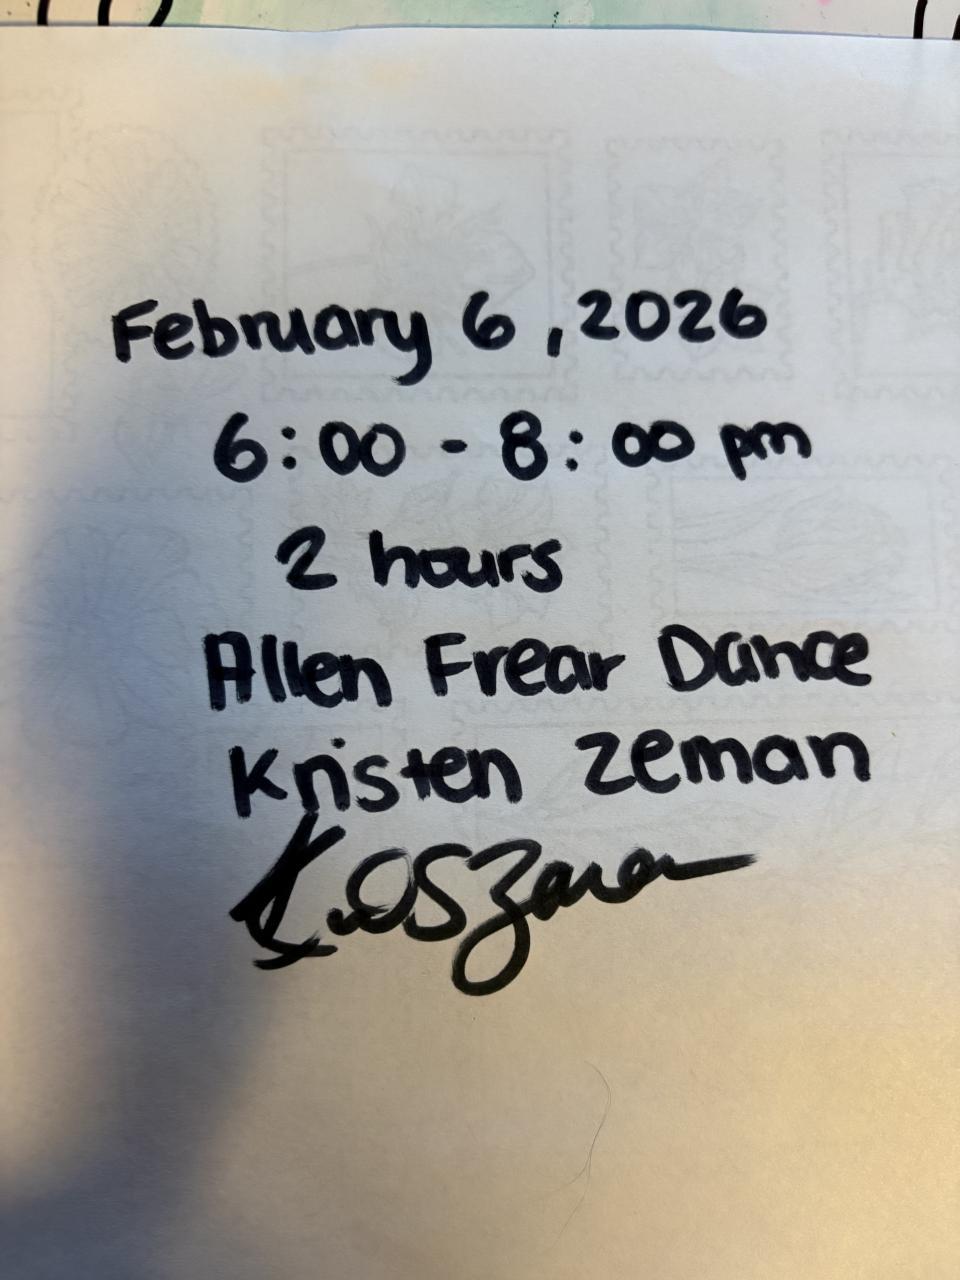 February 6, 2026
6:00 - 8:00 pm
2 hours
Allen Frear Dance
Kristen Zeman